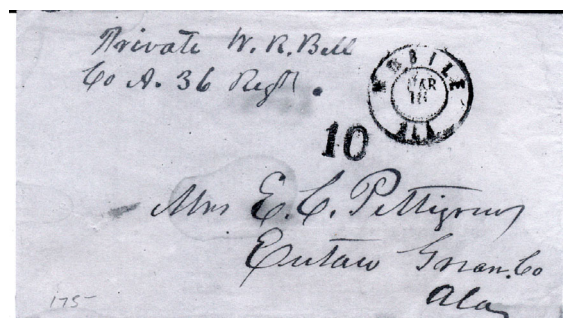 Private W. R. Bell
Co A. 36 Regt.
MOBILE
MAR
18
ALA
10
Mrs E. C. Pettigrew
Eutaw Green. Co
Ala
175